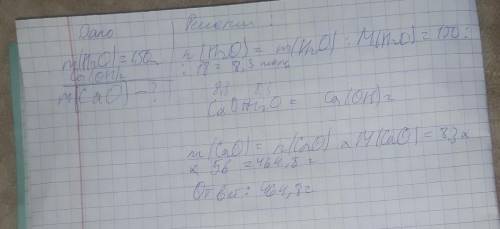 Дано
Решение:
m(H₂O)=150г
Ca(OH)₂
m(CaO)-?
n(H₂O) = m(H₂O) : M(H₂O) = 150 :
: 18 = 8,3 моль
8,3 8,3
CaO+H₂O = Ca(OH)₂
m(CaO) = n(CaO) x M(CaO) = 8,3 x
x 56 = 464,8г
Ответ: 464,8г